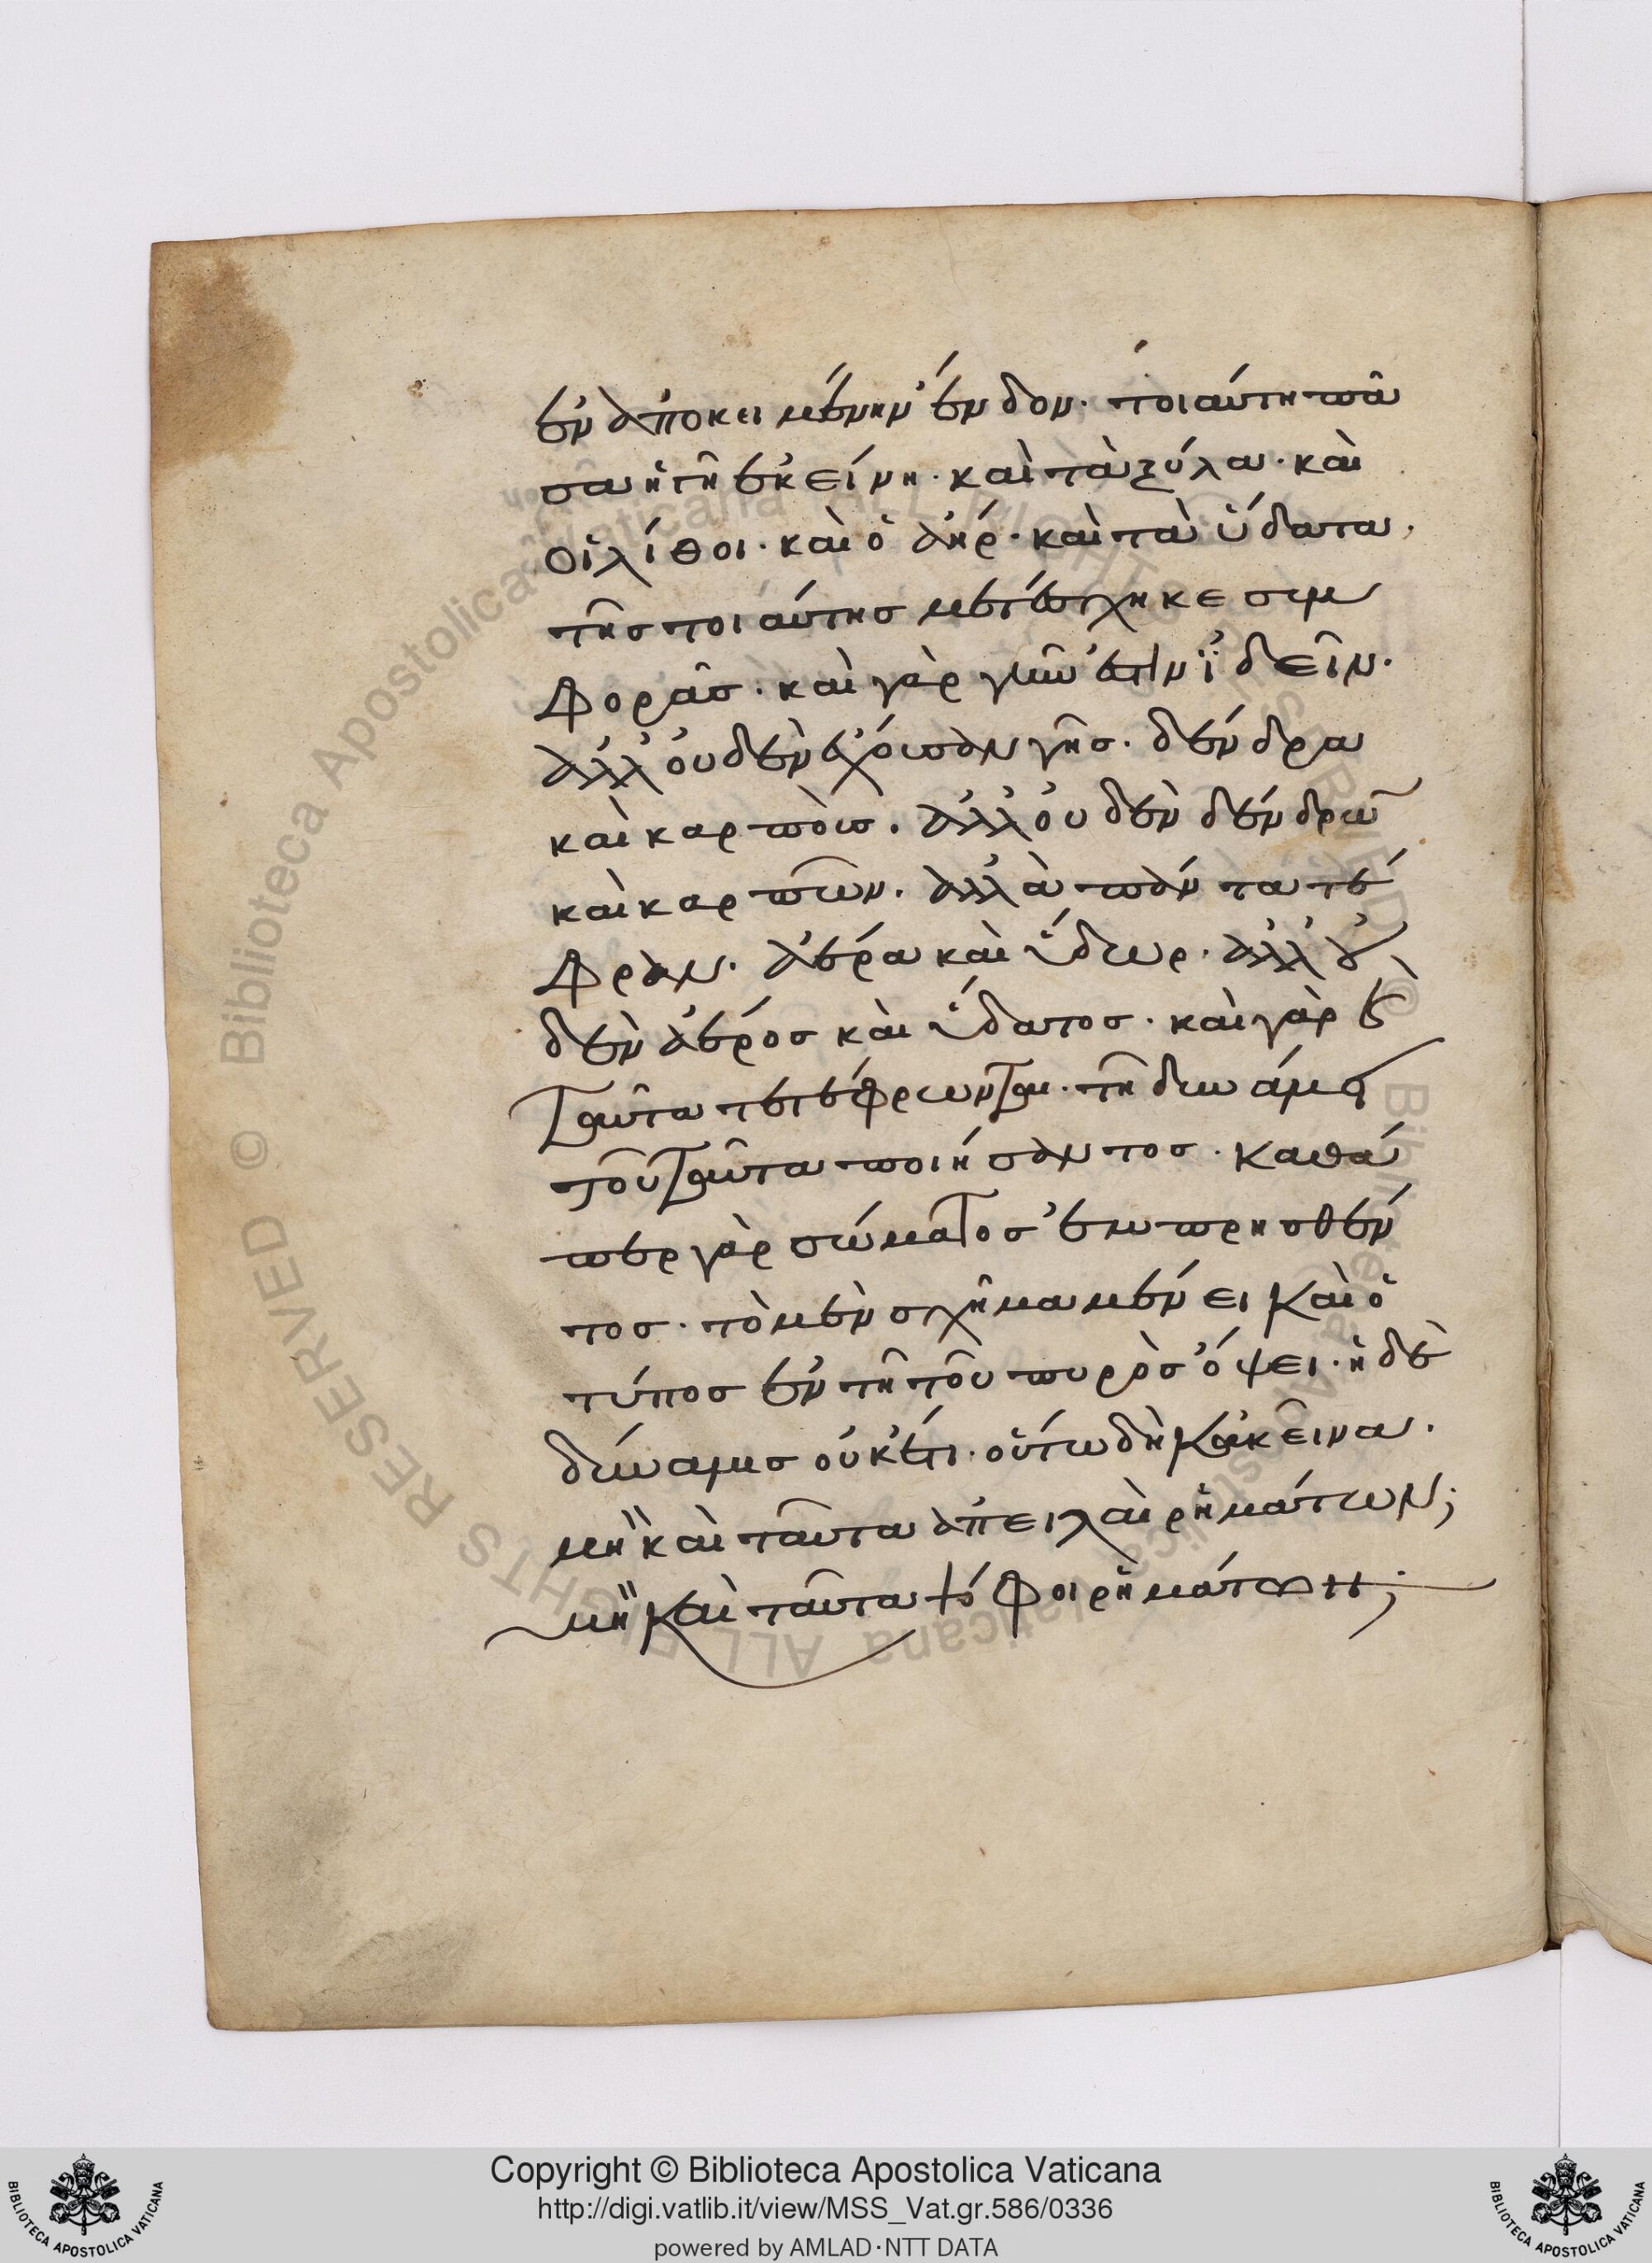 ἐν ἀποκειμένην ἔνδον. τοιαύτη πᾶ
σα ἡ γῆ ἐκείνη. καὶ τὰ ξύλα. καὶ
οἱ λίθοι. καὶ ὁ ἀήρ. καὶ τὰ ὕδατα.
τῆς τοιαύτης μετέσχηκε συμ
φορᾶς. καὶ γὰρ γῆν ἔστιν ἰδεῖν.
ἀλλ' οὐδὲν ἔχουσαν γῆς. δένδρα
καὶ καρποὺς. ἀλλ' οὐδὲν δένδρων
καὶ καρπῶν. ἀλλὰ πάντα τέ
φραν. ἀέρα καὶ ὕδωρ. ἀλλ' οὐ
δὲν ἀέρος καὶ ὕδατος. καὶ γὰρ καὶ
ταῦτα τετέφρωνται. τῇ δυνάμει
τοῦ ταῦτα ποιήσαντος. καθά
περ γὰρ σώματος ἐμπρησθέν
τος. τὸ μὲν σχῆμα μένει καὶ ὁ
τύπος ἐν τῇ τοῦ πυρὸς ὄψει. ἡ δὲ
δύναμις οὐκέτι. οὕτω δὴ κἀκεῖνα.
μὴ καὶ ταῦτα ἀπειλαὶ ῥημάτων;
μὴ καὶ ταῦτα ψόφοι ῥημάτων;
Copyright © Biblioteca Apostolica Vaticana
http://digi.vatlib.it/view/MSS_Vat.gr.586/0336
powered by AMLAD·NTT DATA
BIBLIOTECA APOSTOLICA VATICANA
BIBLIOTECA APOSTOLICA VATICANA